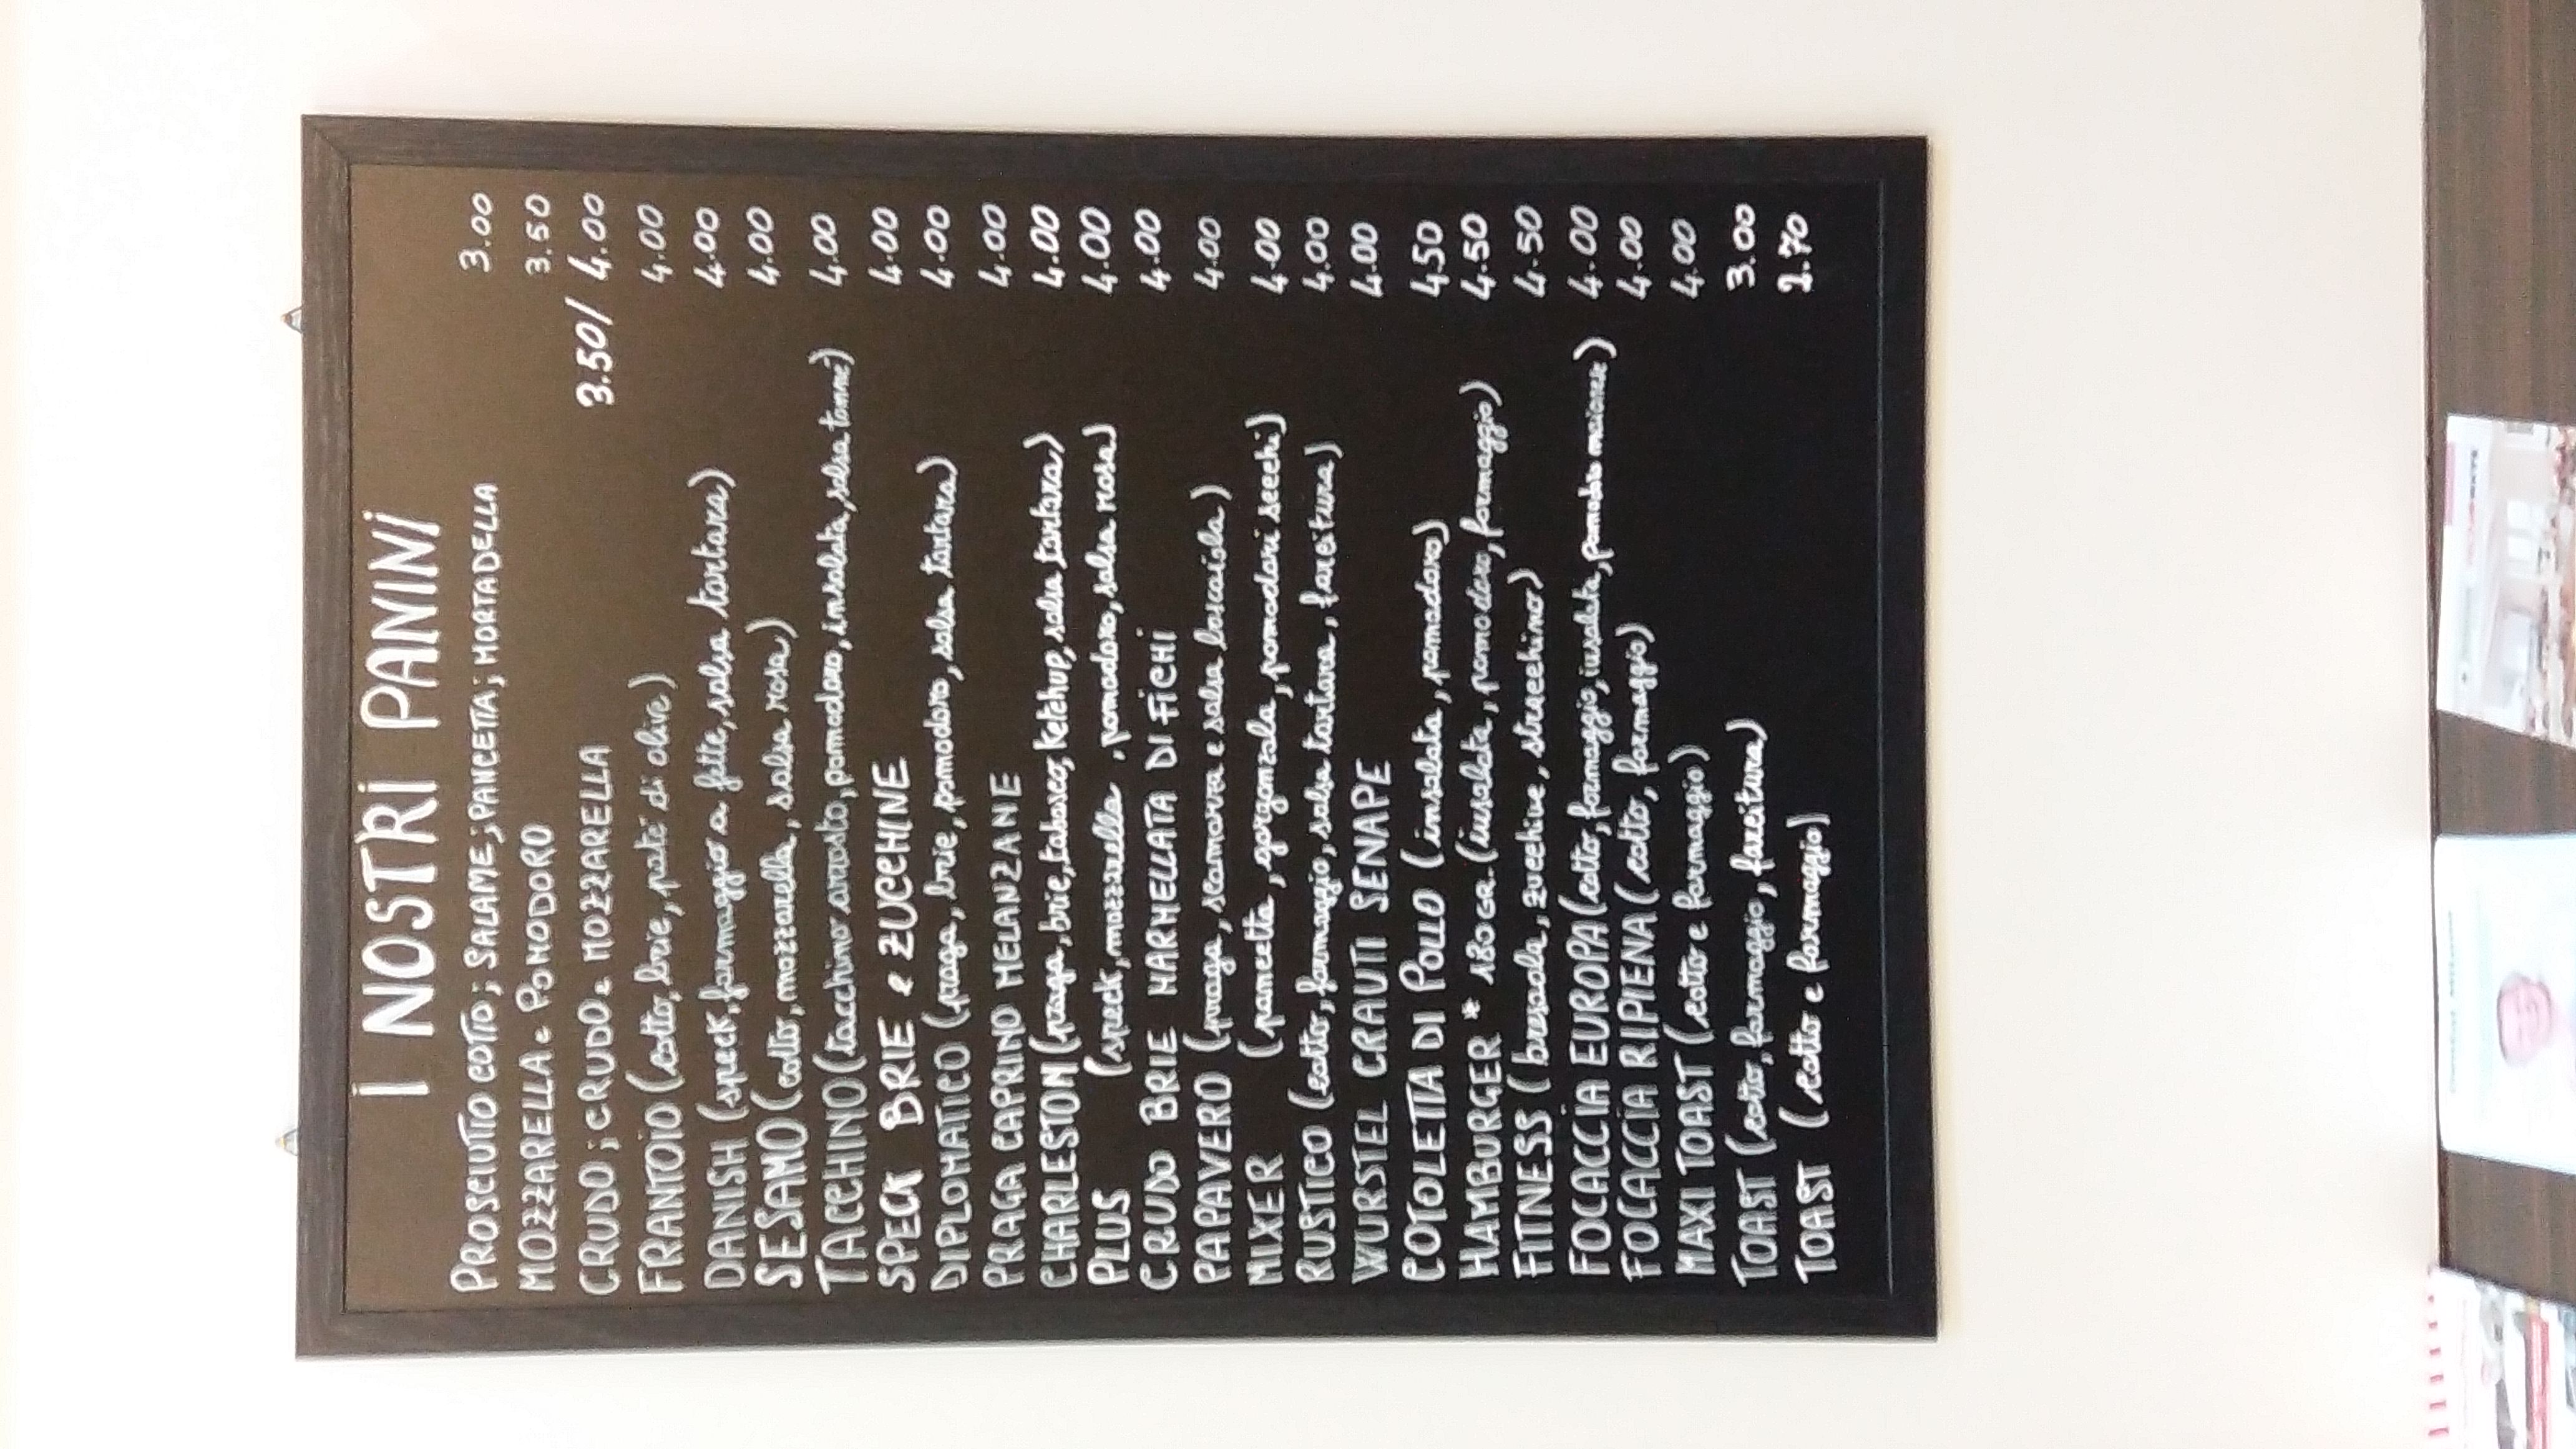 I NOSTRI PANINI
PROSCIUTTO COTTO; SALAME; PANCETTA; MORTADELLA 3.00
MOZZARELLA e POMODORO 3.50
CRUDO; CRUDO e MOZZARELLA 3.50/ 4.00
FRANTOIO (cotto, brie, patè di olive) 4.00
DANISH (speck, formaggio a fette, salsa tartara) 4.00
SESAMO (cotto, mozzarella, salsa rosa) 4.00
TACCHINO (tacchino arrosto, pomodoro, insalata, salsa tonné) 4.00
SPECK BRIE e ZUCCHINE 4.00
DIPLOMATICO (praga, brie, pomodoro, salsa tartara) 4.00
PRAGA CAPRINO MELANZANE 4.00
CHARLESTON (praga, brie, tabasco, ketchup, salsa tartara) 4.00
PLUS (speck, mozzarella, pomodoro, salsa rosa) 4.00
CRUDO BRIE MARMELLATA DI FICHI 4.00
PAPAVERO (praga, scamorza e salsa boscaiola) 4.00
MIXER (pancetta, gorgonzola, pomodori secchi) 4.00
RUSTICO (cotto, formaggio, salsa tartara, farcitura) 4.00
WURSTEL CRAUTI SENAPE 4.00
COTOLETTA DI POLLO (insalata, pomodoro) 4.50
HAMBURGER * 180GR. (insalata, pomodoro, formaggio) 4.50
FITNESS (bresaola, zucchine, stracchino) 4.50
FOCACCIA EUROPA (cotto, formaggio, insalata, pomodoro maionese) 4.00
FOCACCIA RIPIENA (cotto, formaggio) 4.00
MAXI TOAST (cotto e formaggio) 4.00
TOAST (cotto, formaggio, farcitura) 3.00
TOAST (cotto e formaggio) 2.70